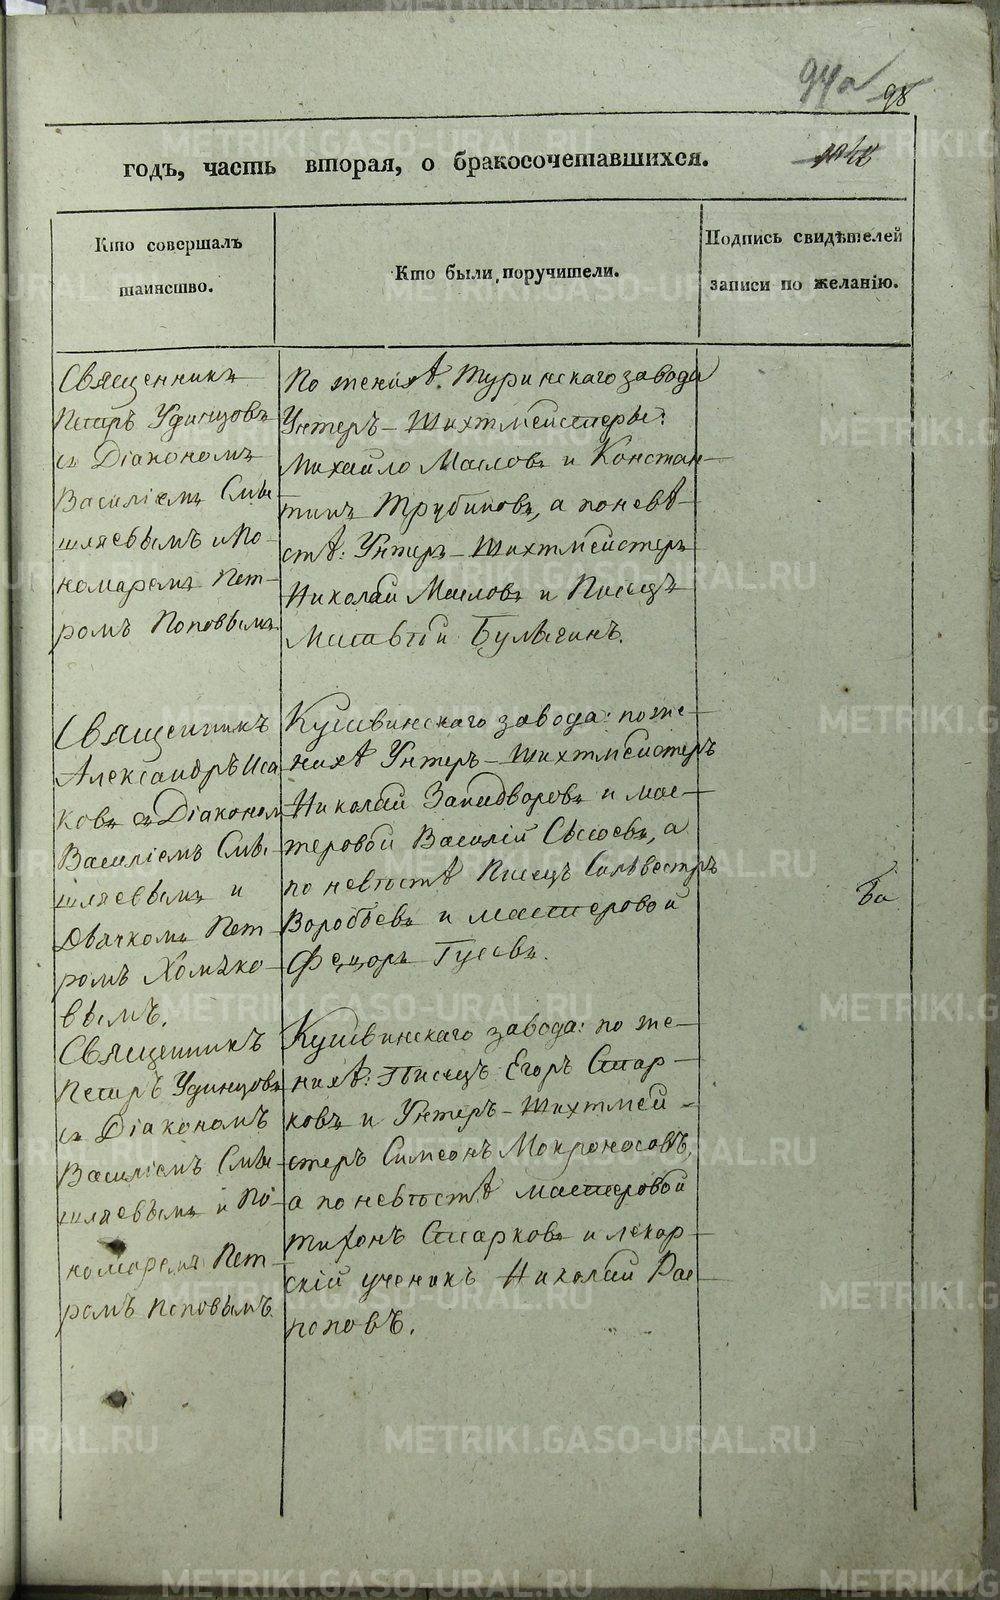 94а 98
годъ, часть вторая, о бракосочетавшихся.
Кто совершалъ
таинство.
Кто были поручители.
Подпись свидѣтелей
записи по желанію.
Священникъ
Петръ Удинцовъ
съ Діакономъ
Василіемъ Смы-
шляевымъ и По-
номаремъ Пет-
ромъ Поповымъ.
По женихѣ: Туринскаго завода
Унтеръ-Шихтмейстеры:
Михайло Масловъ и Констан-
тинъ Трубиновъ, а по невѣ-
стѣ: Унтеръ-Шихтмейстеръ
Николай Масловъ и Писецъ
Матвѣй Булычинъ.
Священникъ
Александръ Иса
ковъ съ Діаконом
Василіемъ Смы-
шляевымъ и
Дьячкомъ Пет
ромъ Хомяко-
вымъ.
Кушвинскаго завода: по же-
нихѣ Унтеръ-Шихтмейстеръ
Николай Западворовъ и мас-
теровой Василій Сысоевъ, а
по невѣстѣ Писецъ Сильвестръ
Воробьевъ и мастеровой
Федоръ Гусевъ.
Священникъ
Петръ Удинцовъ
съ Діакономъ
Василіемъ Смы-
шляевымъ и По-
номаремъ Пет-
ромъ Поповымъ.
Кушвинскаго завода: по же-
нихѣ: Писецъ Егоръ Стар-
ковъ и Унтеръ-Шихтмей-
стеръ Симеонъ Мокроносовъ,
а по невѣстѣ мастеровой
Тихонъ Старковъ и лекар-
скій ученикъ Николай Рас-
поповъ.
METRIKI.GASO-URAL.RU